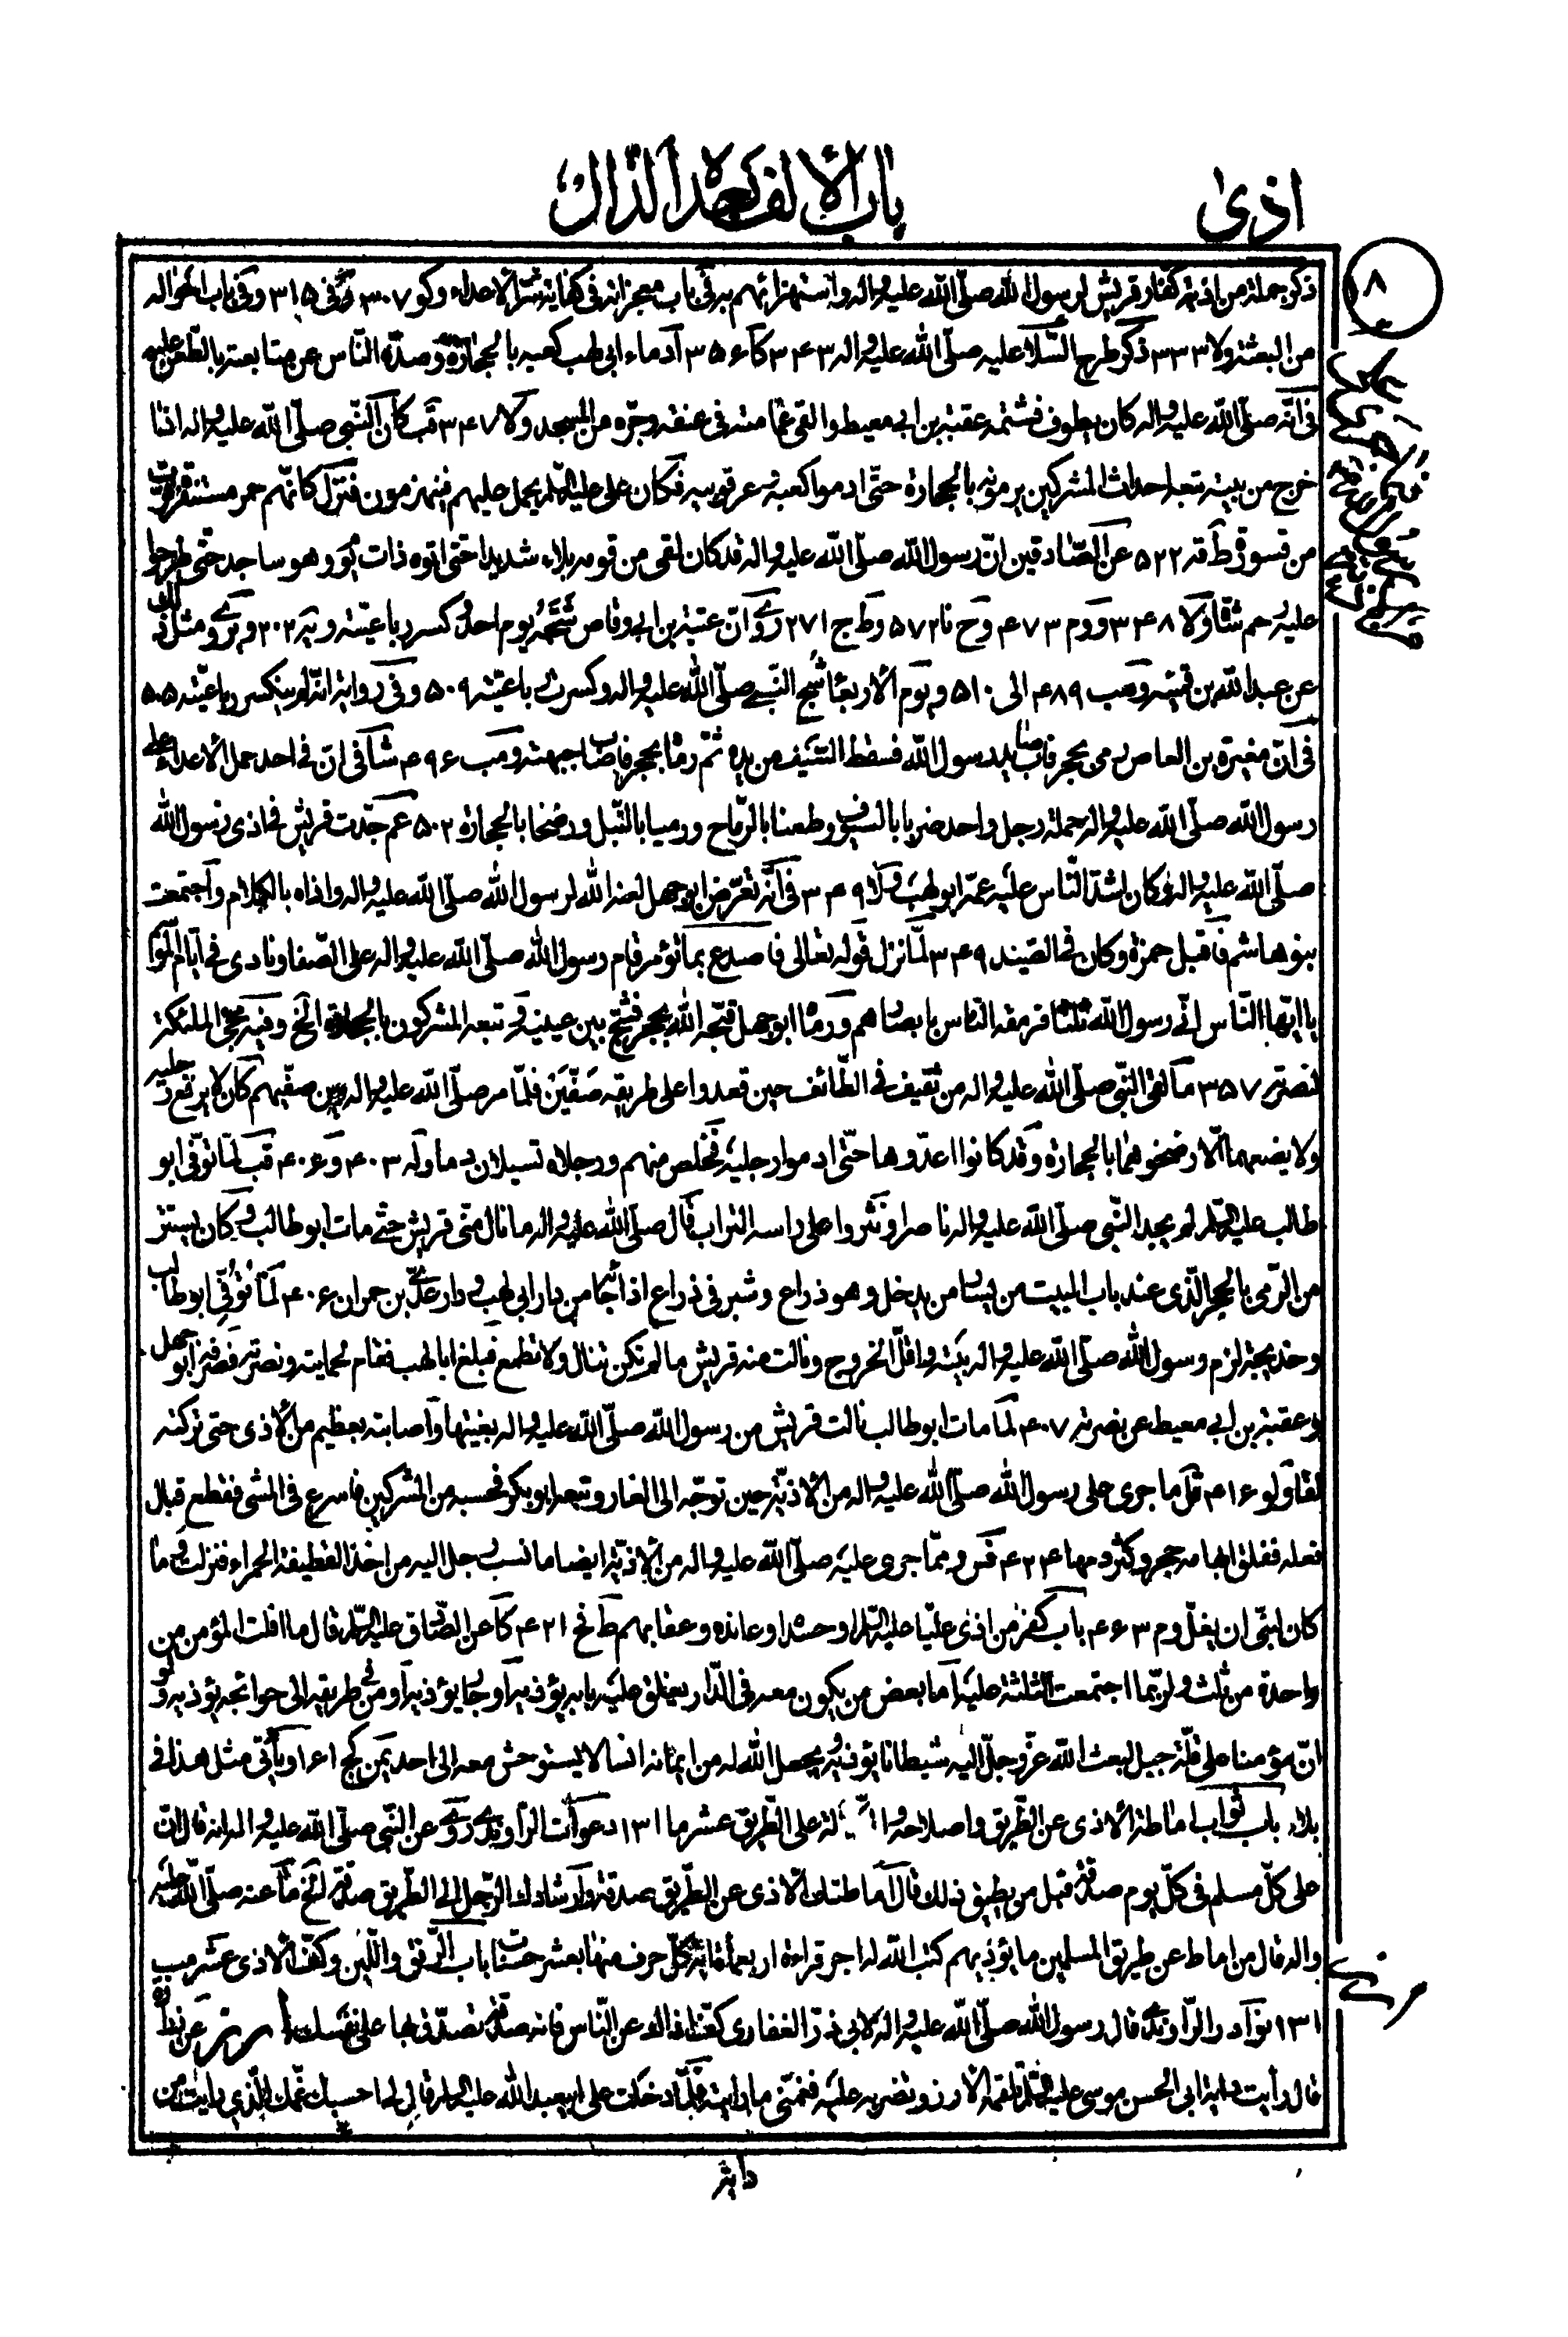 اذى
باب الالف بعده الذال
٨
ذكر جملة من اذية كفار قريش لرسول الله صلّى الله عليه واله واستهزائهم به وفى باب معجزاته فى كفاية شر الاعداء وكو ٣٠٧ وفى ٣١٥ وفى باب احواله
من البعثة ولا ٣٣٣ ذكر طرح السّلا عليه صلّى الله عليه واله ٣٤٣ كا ٣٥٦ ادماء ابى لهب كعبيه بالحجارة وصدّه النّاس عن متابعته بالطّعن عليه
فى انّه صلّى الله عليه واله كان يطوف فشتمه عقبة بن ابى معيط والقى عمامته فى عنقه وجرّه من المسجد ولا ٣٤٧ قب كان النّبى صلّى الله عليه واله اذا
خرج من بيته تبعه احداث المشركين يرمونه بالحجارة حتّى ادموا كعبه وعرقوبيه فكان على عليه السّلم يحمل عليهم فينهزمون فنزل كانّهم حمر مستنفرة فرّت
من قسورة ط قد ٥٢٢ عن الصّادقين انّ رسول الله صلّى الله عليه واله قد كان لقى من قومه بلاء شديدا حتى اتوه ذات يوم وهو ساجد حتّى طرحوا
عليه رحم شاة ولا ٣٤٨ وو م ٤٧٣ وح نا ٥٧٢ وط ج ٢٧١ روى انّ عتبة بن ابى وقاص شجّه يوم احد وكسر رباعيّته ويه ٢٠٢ وروى ومثل ذلك
عن عبد الله بن قميئة ومب ٤٨٩ الى ٥١٠ ويوم الاربعا شجّ النّبى صلّى الله عليه واله وكسرت رباعيّته ٥٠٩ وفى رواية انّه لم ينكسر رباعيّته ٥٠٥
فى انّ مغيرة بن العاص رمى بحجر فاصاب يد رسول الله فسقط السّيف من يده ثمّ رماه بحجر فاصاب جبهته ومب ٤٩٦ شا فى انّ فى احد حمل الاعداء على
رسول الله صلّى الله عليه واله حملة رجل واحد ضربا بالسيوف وطعنا بالرّماح ورميا بالنّبل ورضخا بالحجارة ٥٠٢ عم جدّت قريش فى اذى رسول الله
صلّى الله عليه واله وكان اشدّ النّاس عليه عمّه ابو لهب ولا ٣٤٩ فى انّه تعرّض ابو جهل لعنه الله لرسول الله صلّى الله عليه واله واذاه بالكلام واجتمعت
بنو هاشم فاقبل حمزة وكان فى الصّيد ٣٤٩ لمّا نزل قوله تعالى فاصدع بما تؤمر قام رسول الله صلّى الله عليه واله على الصّفا ونادى فى ايّام الموسم
يا ايّها النّاس انّى رسول الله ثلثا فرمقه النّاس بابصارهم ورماه ابو جهل قبّحه الله بحجر فشجّ بين عينيه وتبعه المشركون بالحجارة الخ وفيه مجئ الملئكة
لنصرته ٣٥٧ ما لقى النّبى صلّى الله عليه واله من ثقيف فى الطّائف حين قعدوا على طريقه صفّين فلمّا مر صلّى الله عليه واله بين صفّيهم كان لا يرفع رجليه
ولا يضعهما الّا رضخوهما بالحجارة وقد كانوا اعدّوها حتّى ادموا رجليه فخلص منهم ورجلاه تسيلان دما وله ٤٠٣ و ٤٠٦ قب لمّا توفّى ابو
طالب عليه السّلم لم يجد النّبى صلّى الله عليه واله ناصرا ونثروا على راسه التراب قال صلّى الله عليه واله ما نال منّى قريش حتّى مات ابو طالب وكان يستتر
من الرّمى بالحجر الّذى عند باب البيت من يسار من يدخل وهو ذراع وشبر فى ذراع اذا جاءه من دار ابى لهب ودار عدىّ بن حمران ٤٠٦ لمّا توفّى ابو طالب
وخديجة لزم رسول الله صلّى الله عليه واله بيته واقلّ الخروج ونالت منه قريش ما لم تكن تنال ولا تطمع فبلغ ابا لهب فقام لحمايته ونصرته فصرفه ابو جهل
وعقبة بن ابى معيط عن نصرته ٤٠٧ لمّا مات ابو طالب نالت قريش من رسول الله صلّى الله عليه واله بغيتها واصابته بعظيم من الاذى حتى تركته
لقا ولو ٤١٦ قل ما جرى على رسول الله صلّى الله عليه واله من الاذيّة حين توجّه الى الغار وتبعه ابو بكر فحسبه من المشركين فاسرع فى المشى فقطع قبال
نعله ففلق ابهامه حجر وكثر دمها ٤٢٤ فس وممّا جرى عليه صلّى الله عليه واله من الاذيّة ايضا ما نسب رجل اليه من اخذ القطيفة الحمراء فنزلت وما
كان لنبىّ ان يغلّ وم ٤٦٣ باب كفر من اذى عليّا عليه السّلم او حسده او عانده وعقابهم ط فح ٤٢١ كا عن الصّادق عليه السّلم قال ما افلت المؤمن من
واحدة من ثلث ولربّما اجتمعت الثلثة عليه امّا بعض من يكون معه فى الدّار يغلق عليه بابه يؤذيه او جار يؤذيه او من فى طريقه الى حوائجه يؤذيه ولو
انّ مؤمنا على قلّة جبل لبعث الله عزّوجلّ اليه شيطانا يؤذيه ويجعل الله له من ايمانه انسا لا يستوحش معه الى احد يمن كج ١٦١ وياتى مثل هذا فى
بلاء باب ثواب اماطة الاذى عن الطّريق واصلاحه والدّلالة على الطّريق عشر ما ١٣١ دعوات الرّاوندى روى عن النّبى صلّى الله عليه واله انه قال انّ
على كلّ مسلم فى كلّ يوم صدقة قيل من يطيق ذلك قال اماطتك الاذى عن الطّريق صدقة وارشادك الرّجل الى الطّريق صدقة الخ ما عنه صلّى الله عليه
واله قال من اماط عن طريق المسلمين ما يؤذيهم كتب الله له اجر قراءة اربعمأة اية كلّ حرف منها بعشر حسنات باب الرّفق واللّين وكفّ الاذى عشر مب
١٣١ نوادر الرّاوندى قال رسول الله صلّى الله عليه واله لابى ذرّ الغفارى كفّ اذاك عن النّاس فانه صدقة تصدّق بها على نفسك
قال رأيت داية ابى الحسن موسى عليه السّلم تلقمه الارز وتضربه عليه فغمّنى ما رأيته فلمّا دخلت على ابى عبد الله عليه السّلم قال لى احسبك غمّك الّذى رايت من
داية